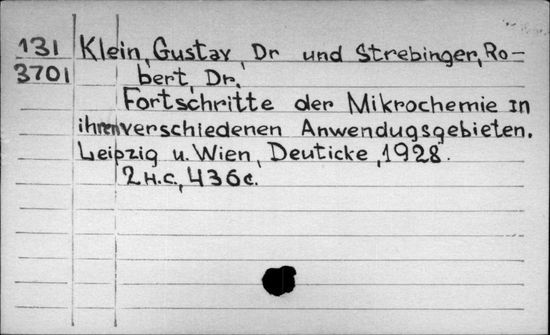 131 Klein, Gustav, Dr und Strebinger, Ro-
3701 bert, Dr.
Fortschritte der Mikrochemie in
ihren verschiedenen Anwendugsgebieten.
Leipzig u. Wien, Deuticke, 1928.
2 н.с., 436 с.